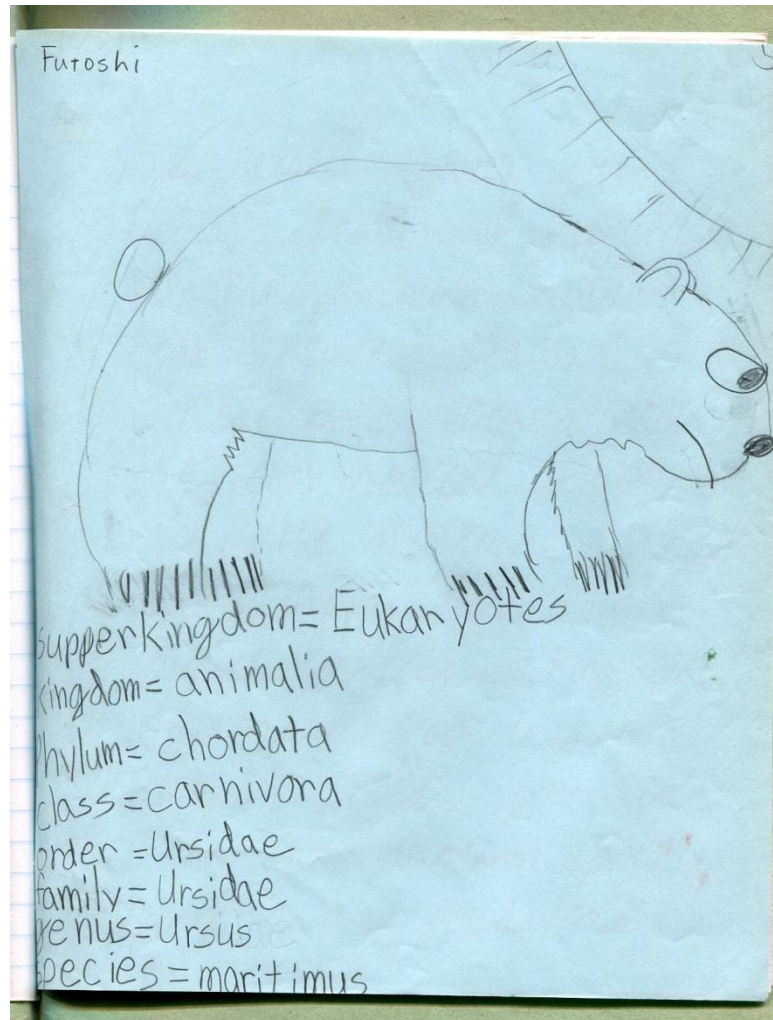 Futoshi
supperkingdom= Eukaryotes
kingdom= animalia
Phylum= chordata
class=carnivora
order =Ursidae
family= Ursidae
genus=Ursus
species=maritimus